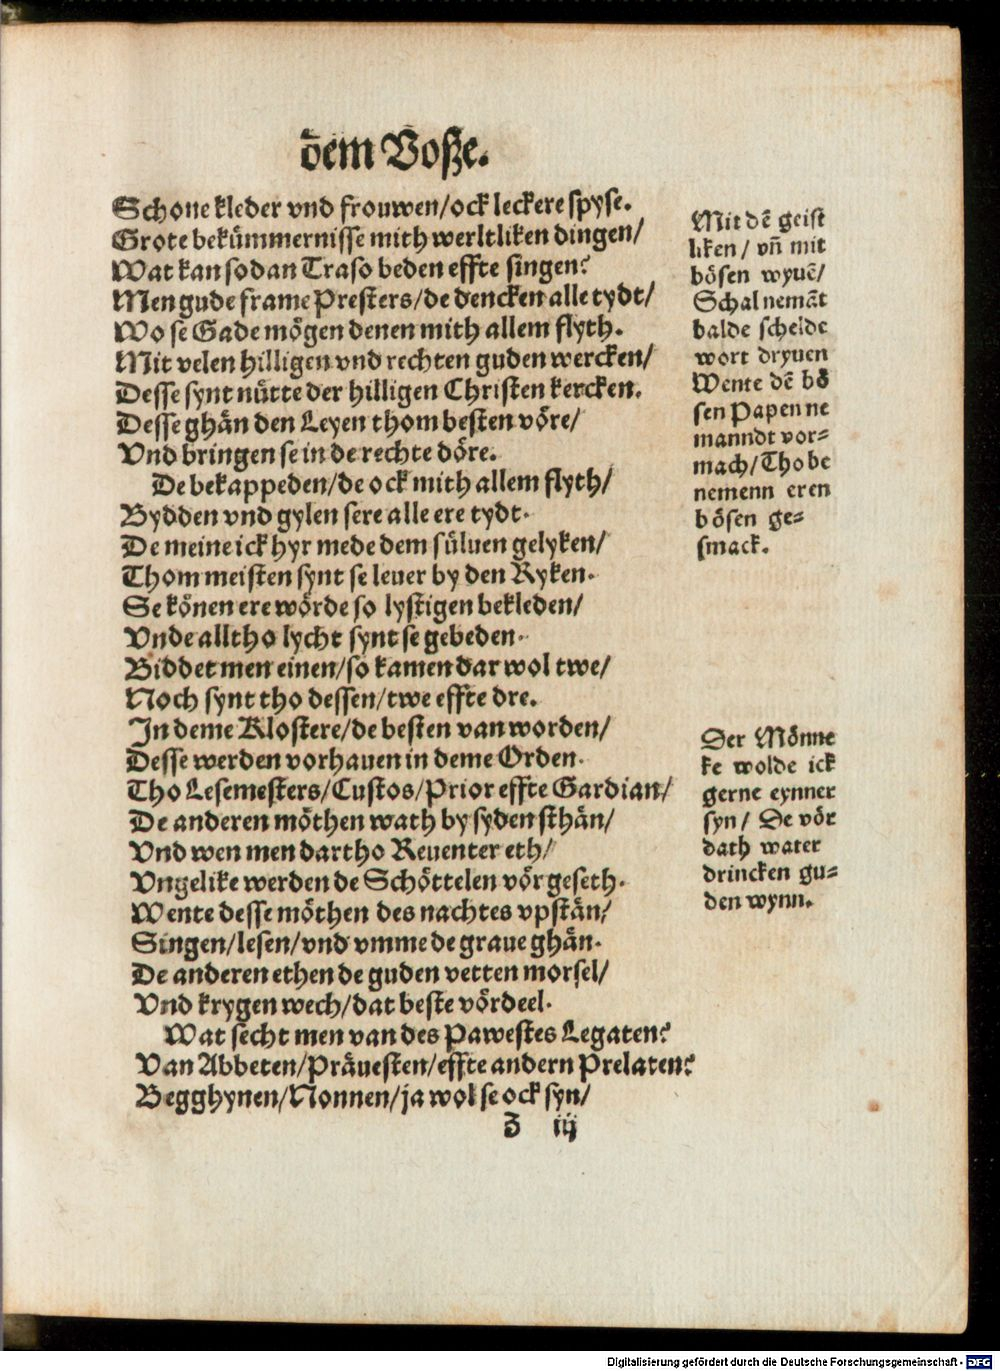 dem Voße.
Schone kleder vnd frouwen/ ock leckere spyse.
Grote bekümmernisse mith werltliken dingen/
Wat kan sodan Traso beden effte singen?
Men gude frame Presters/ de dencken alle tydt/
Wo se Gade mögen denen mith allem flyth.
Mit velen hilligen vnd rechten guden wercken/
Desse synt nütte der hilligen Christen kercken.
Desse ghän den Leyen thom besten vöre/
Vnd bringen se in de rechte döre.
De bekappeden/ de ock mith allem flyth/
Bydden vnd gylen sere alle ere tydt.
De meine ick hyr mede dem süluen gelyken/
Thom meisten synt se leuer by den Ryken.
Se könen ere wörde so lystigen bekleden/
Vnde alltho lycht synt se gebeden.
Biddet men einen/ so kamen dar wol twe/
Noch synt tho dessen/ twe effte dre.
In deme Klostere/ de besten van worden/
Desse werden vorhauen in deme Orden.
Tho Lesemesters/ Custos/ Prior effte Gardian/
De anderen möthen wath by syden sthän/
Vnd wen men dartho Reuenter eth/
Vngelike werden de Schöttelen vör geseth.
Wente desse möthen des nachtes vpstän/
Singen/ lesen/ vnd vmme de graue ghän.
De anderen ethen de guden vetten morsel/
Vnd krygen wech/ dat beste vördeel.
Wat secht men van des Pawestes Legaten?
Van Abbeten/ Präuesten/ effte andern Prelaten?
Begghynen/ Nonnen/ ja wol se ock syn/
Z iij
Mit dē geist
liken / vn̄ mit
bösen wyuē/
Schal nemāt
balde schelde
wort dryuen
Wente dē bö
sen Papen ne
manndt vor=
mach/ Tho be
nemenn eren
bösen ge=
smack.
Der Mönne
ke wolde ick
gerne eynner
syn/ De vör
dath water
drincken gu=
den wynn.
Digitalisierung gefördert durch die Deutsche Forschungsgemeinschaft - DFG